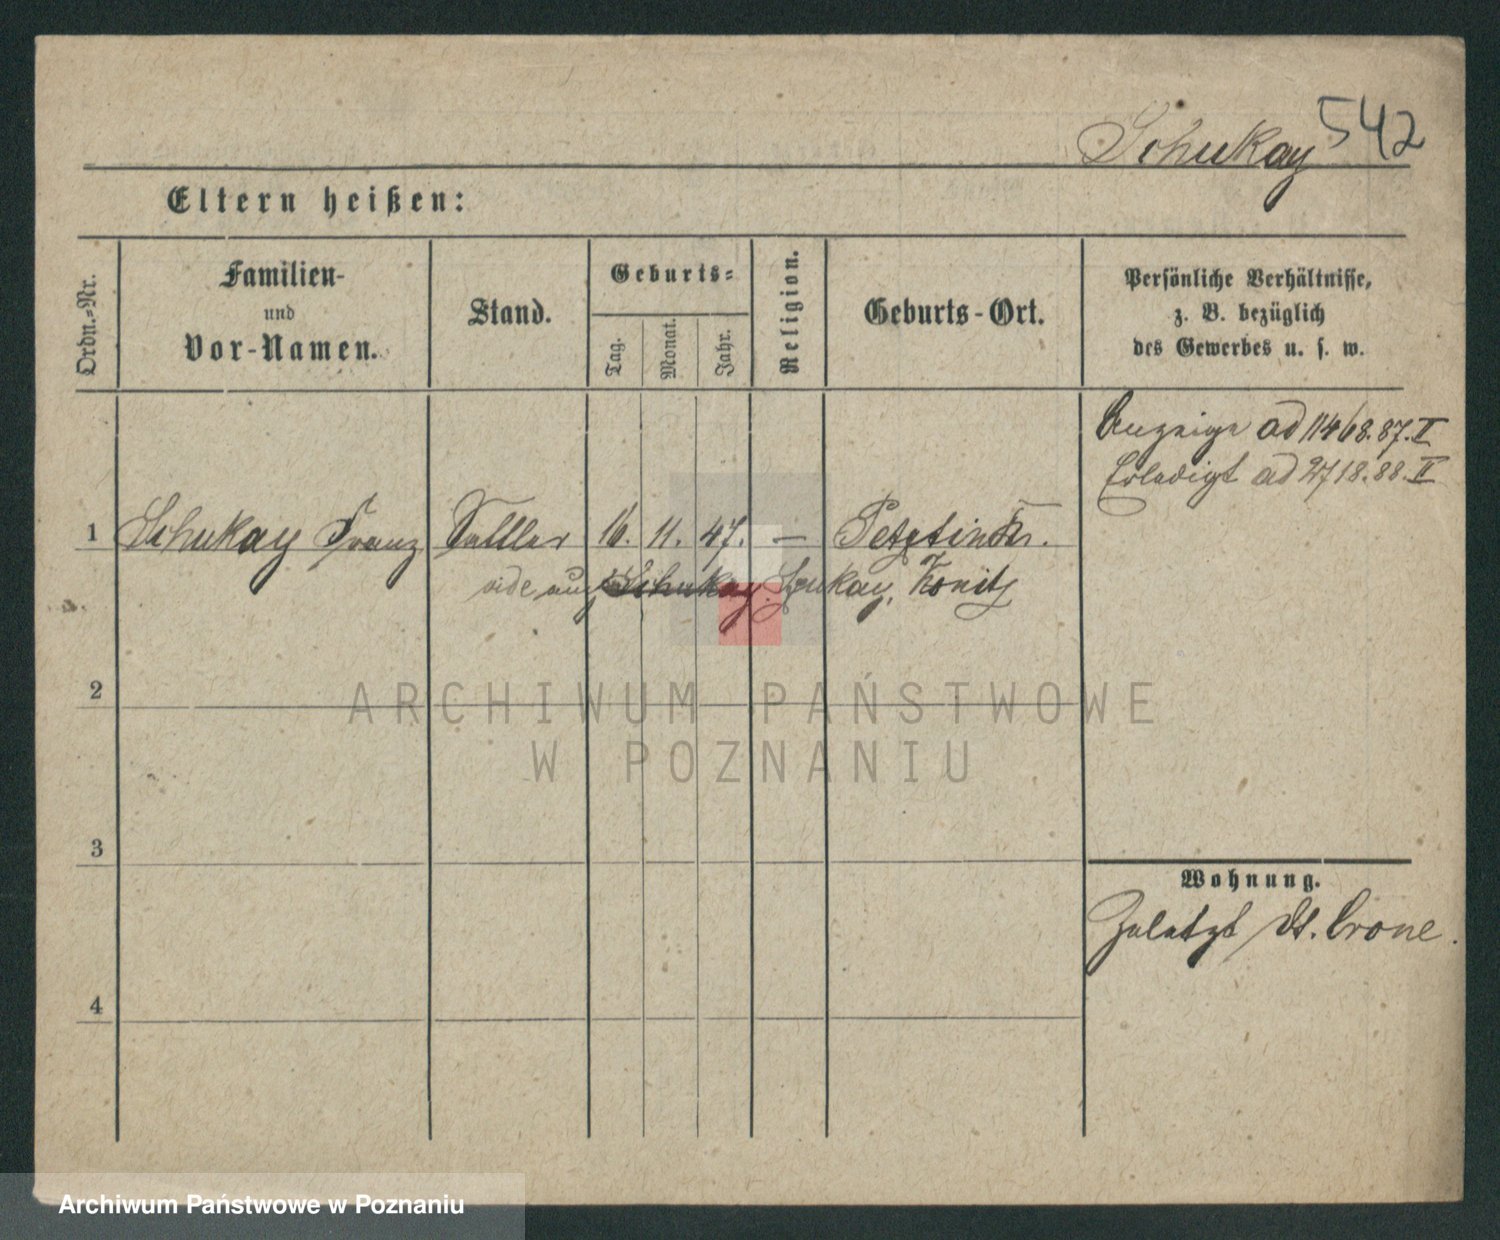 Schukay 542
Eltern heißen:
Ordn.-Nr.
Familien-
und
Vor-Namen.
Stand.
Geburts-
Tag.
Monat.
Jahr.
Religion.
Geburts-Ort.
Persönliche Verhältnisse,
z. B. bezüglich
des Gewerbes u. s. w.
Anzeige ad 11468.87.II
Erledigt ad 2718.88.II
1 Schukay Franz Sattler 16. 11. 47. —
vide auch Schukay Szukay, Konitz
2
3
4
Wohnung.
Zuletzt Dt. Crone.
ARCHIWUM PAŃSTWOWE
W POZNANIU
Archiwum Państwowe w Poznaniu